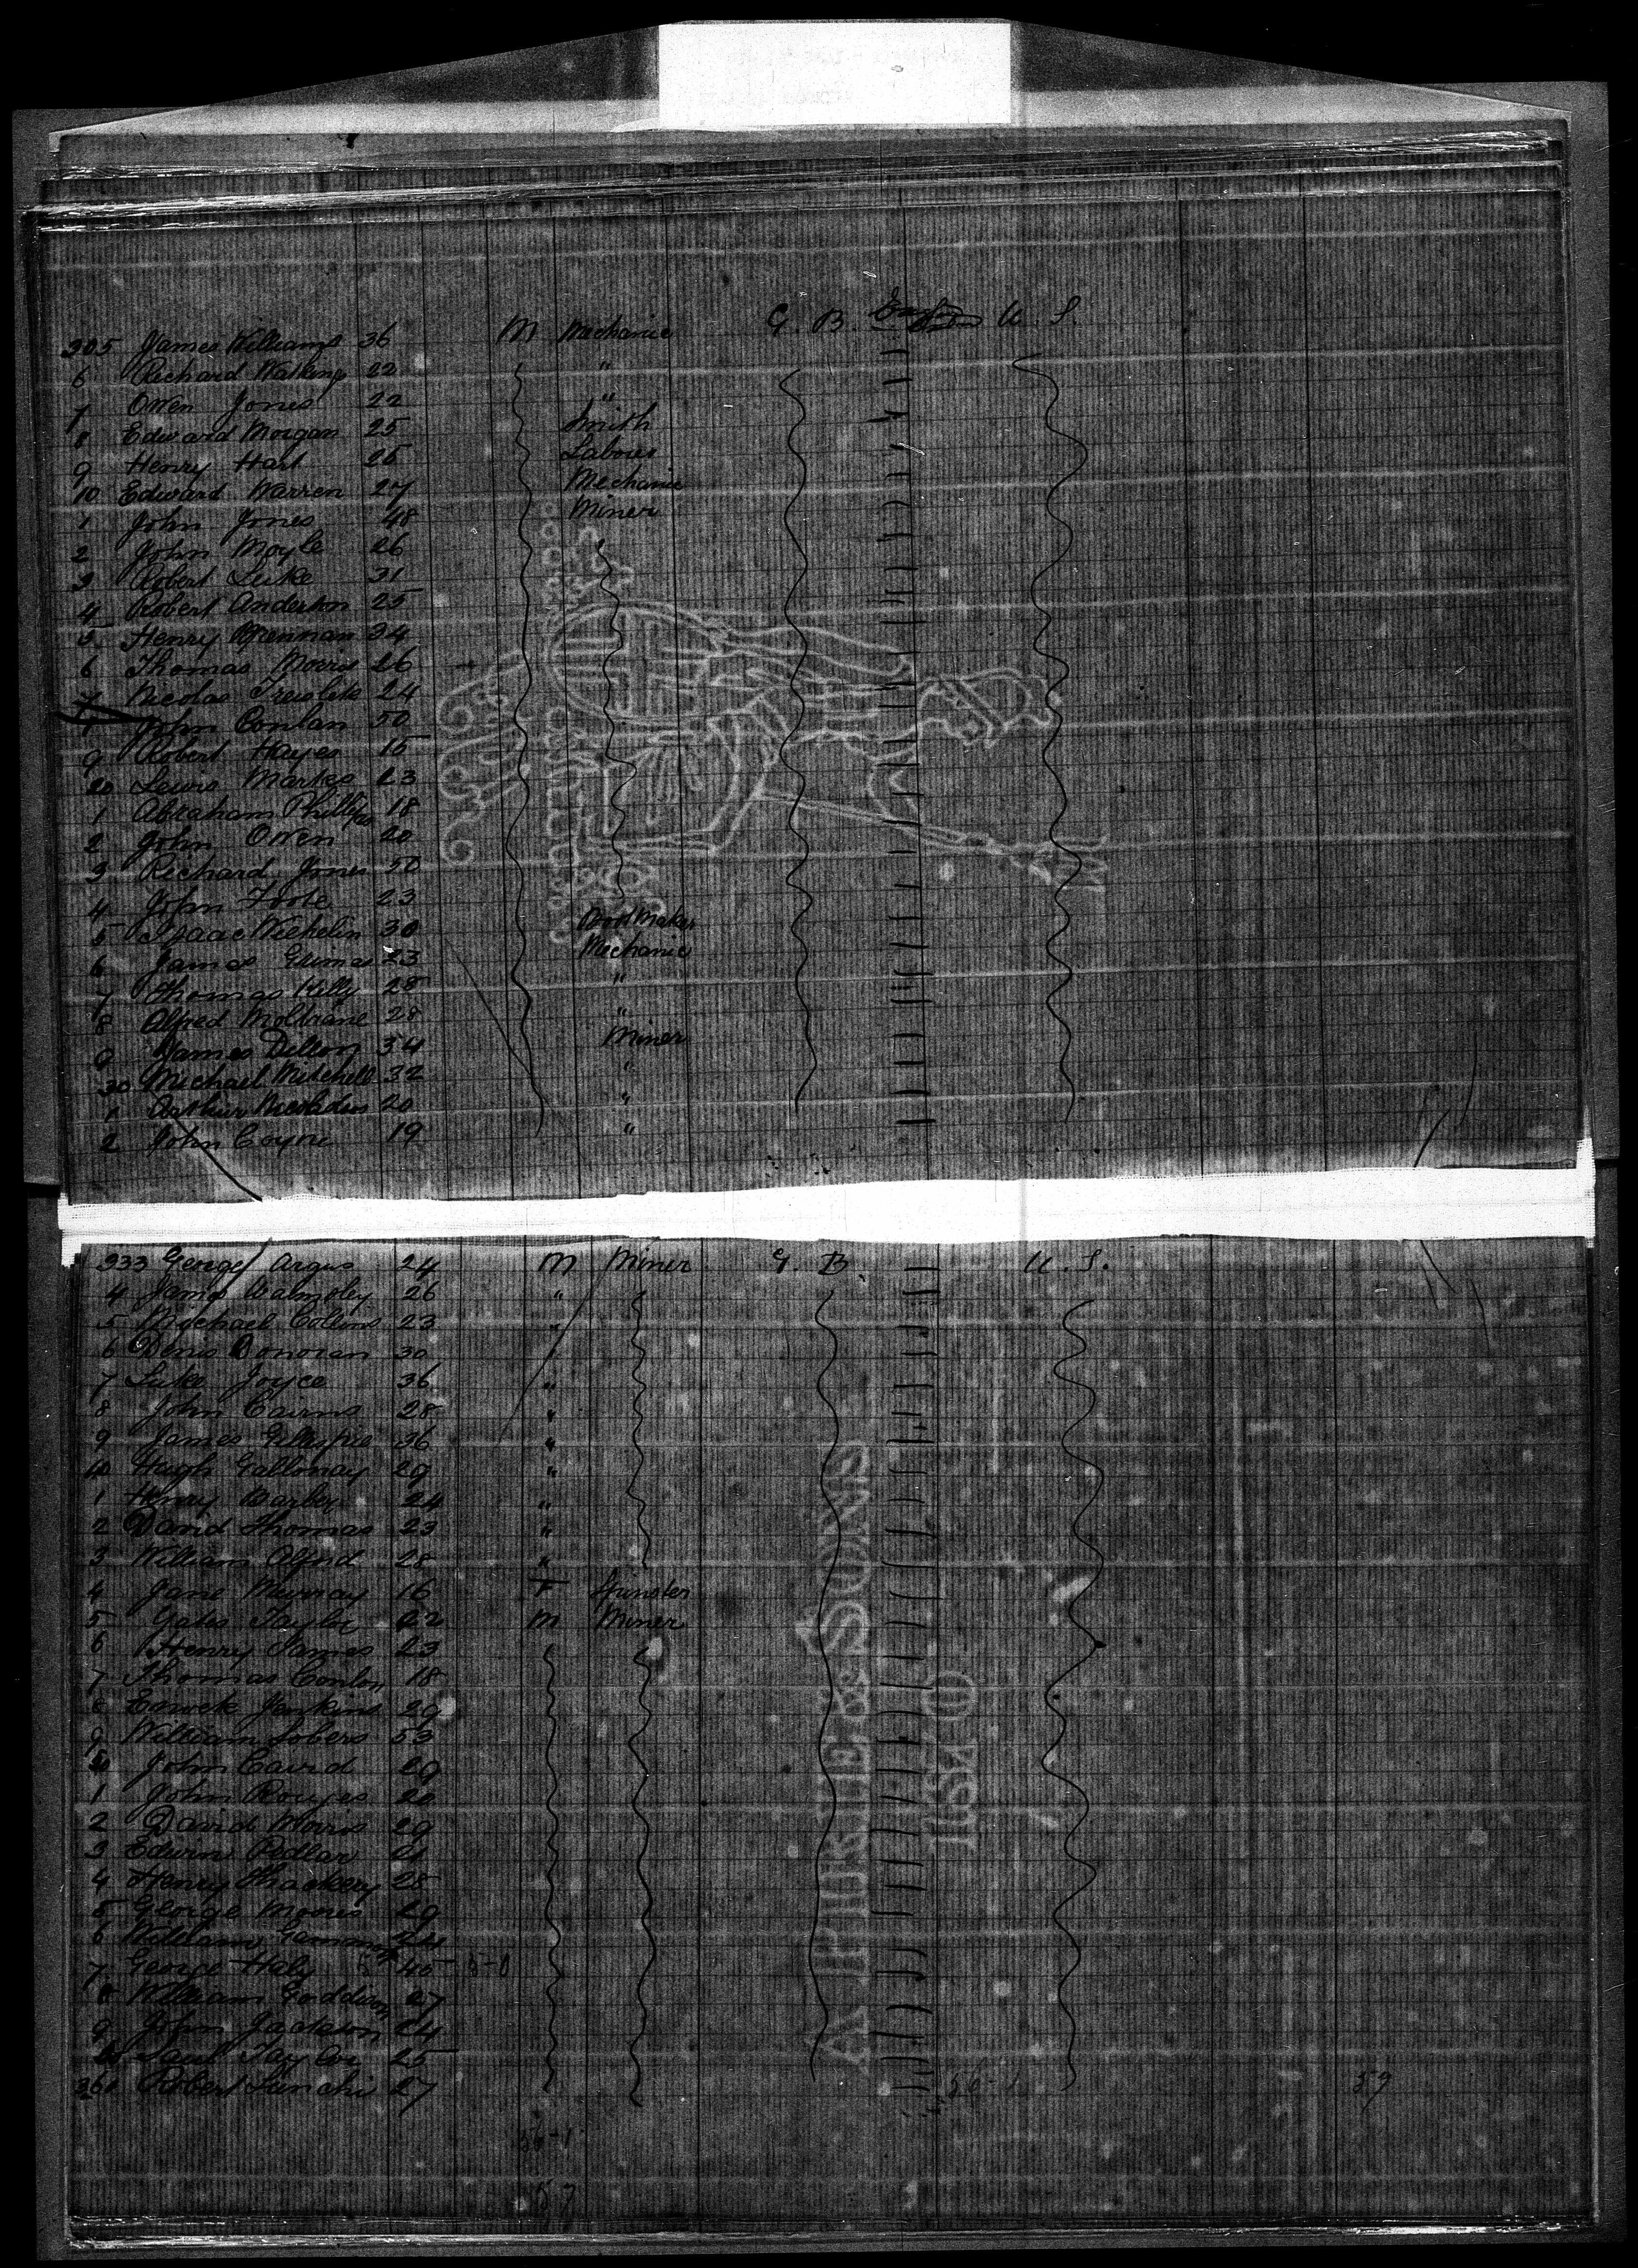 305 James Williams 36 M Mechanic G. B. U. S.
6 Richard Watkins 22 "
7 Owen Jones 22 "
8 Edward Morgan 25 Smith
9 Henry Hart 25 Labour
10 Edward Warren 27 Mechanic
1 John Jones 48 Miner
2 John Moyle 26
3 Robert Luke 31
4 Robert Anderson 25
5 Henry Brennan 34
6 Thomas Morris 26
7 Nicolas 24
John Conlan 50
9 Robert Hayes 15
20 Lewis Marks 23
1 Abraham Phillips 18
2 John Owen 20
3 Richard Jones 50
4 John Foote 23
5 Isaac 30 Bootmaker
6 James Grimes 23 Mechanic
7 Thomas Kelly 28 "
8 Alfred 28 "
9 James Dillon 34 Miner
30 Michael Mitchell 32 "
1 Arthur 20 "
2 John Coyne 19 "
333 George Argus 24 M Miner G. B. U. S.
4 James Walmsley 26 "
5 Michael Collins 23 "
6 Denis Donovan 30 "
7 Luke Joyce 36 "
8 John Cairns 28 "
9 James Gillespie 36 "
40 Hugh Galloway 29 "
1 Henry Barley 24 "
2 David Thomas 23 "
3 William Alford 28 "
4 Jane Murray 16 F Spinster
5 Yates Taylor 22 M Miner
6 Henry James 23
7 Thomas Conlon 18
8 Jenkins 29
9 William Sobers 53
50 John Caird 29
1 John 20
2 David Morris 29
3 Edwin Pedlar 21
4 Henry Thackery 28
5 George Moores 29
6 William Gammon 24
7 George Haly 45
8 William 27
9 John Jackson 24
60 Saul Taylor 25
361 Robert 27
56-1 59
56-1
57
A PIRIE & SONS
1870